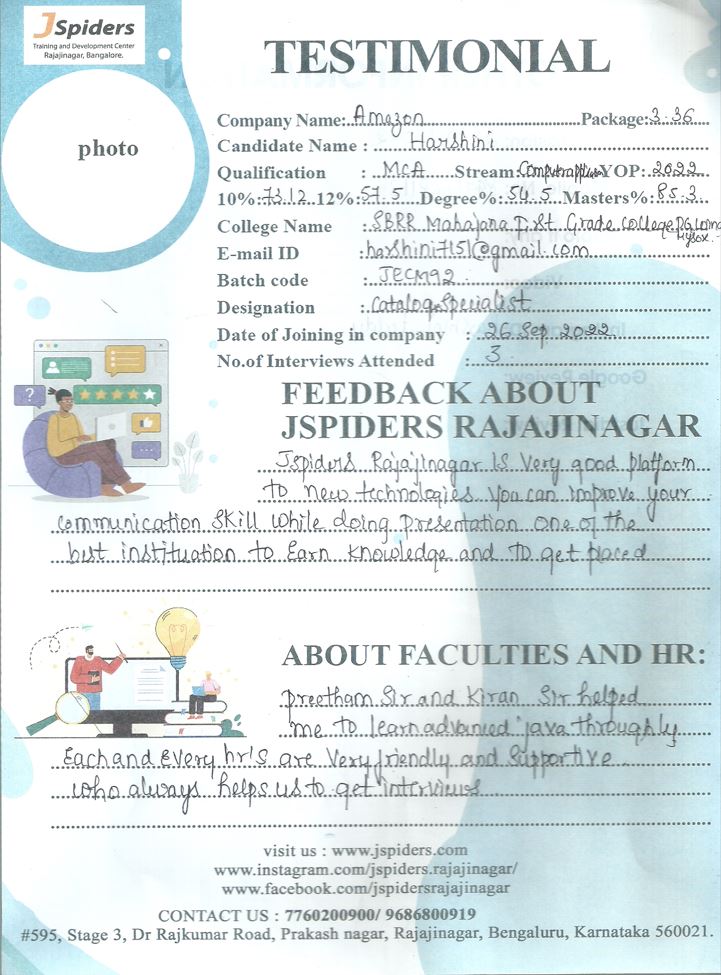 JSpiders
Training and Development Center
Rajajinagar, Bangalore.
TESTIMONIAL
photo
Company Name: Amazon Package: 3.36
Candidate Name : Harshini
Qualification : MCA Stream: YOP: 2022
10%: 73.12 12%: 57.5 Degree%: 54.5 Masters%: 85.3
College Name : SBRR Mahajana First Grade college PG
Mysor.
E-mail ID : harshini7151@gmail.com
Batch code : JECM92
Designation : Catalog Specialist
Date of Joining in company : 26 Sep 2022
No.of Interviews Attended : 3
FEEDBACK ABOUT
JSPIDERS RAJAJINAGAR
Jspiders Rajajinagar is very good platform
to new technologies you can improve your
communication skill while doing presentation one of the
best instituation to Earn knowledge and to get placed
ABOUT FACULTIES AND HR:
preetham Sir and Kiran Sir helped
me to learn advanced java throughly
Each and Every hr's are very friendly and supportive
who always helps us to get interviews
visit us : www.jspiders.com
www.instagram.com/jspiders.rajajinagar/
www.facebook.com/jspidersrajajinagar
CONTACT US : 7760200900/ 9686800919
#595, Stage 3, Dr Rajkumar Road, Prakash nagar, Rajajinagar, Bengaluru, Karnataka 560021.